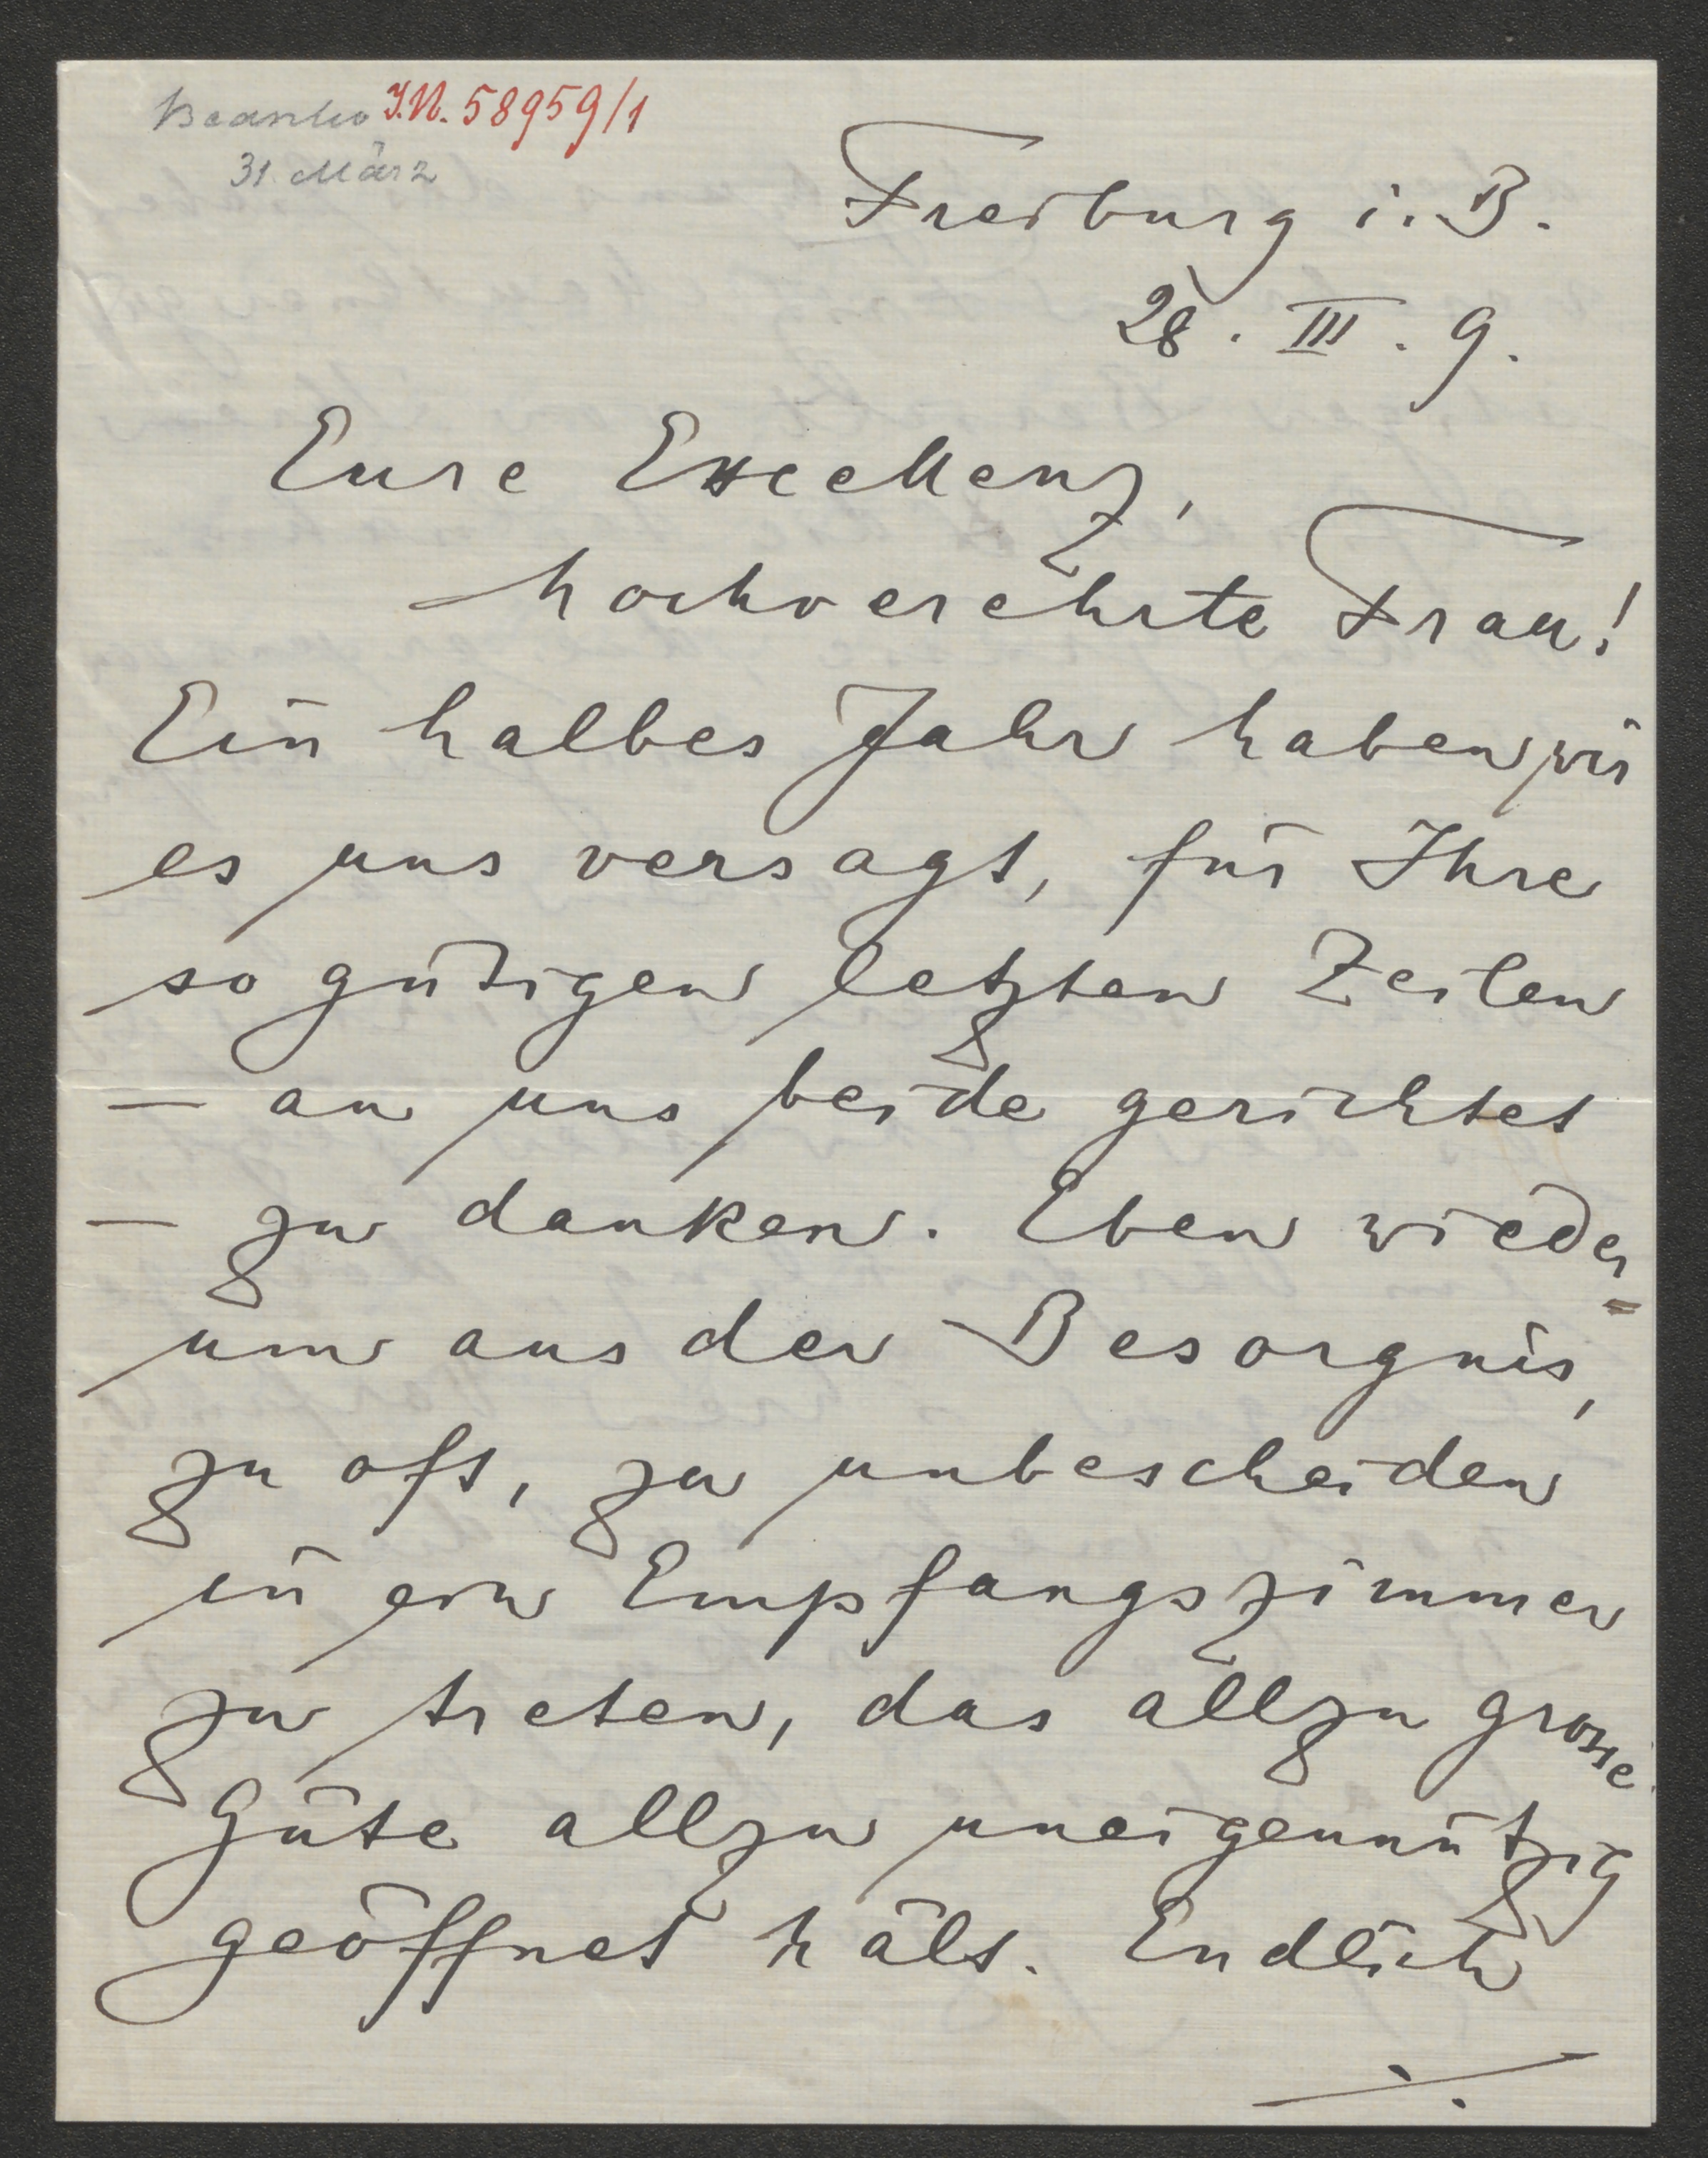 Beantw I.N. 58959/1
31. März
Freiburg i. B.
28. III. 9.
Eure Excellenz,
hochverehrte Frau!
Ein halbes Jahr haben wir
es uns versagt, für Ihre
so gütigen letzten Zeilen
— an uns beide gerichtet
— zu danken. Eben wieder=
um aus der Besorgnis,
zu oft, zu unbescheiden
in ein Empfangszimmer
zu treten, das allzu grosse
Güte allzu uneigennützig
geöffnet hält. Endlich
./.